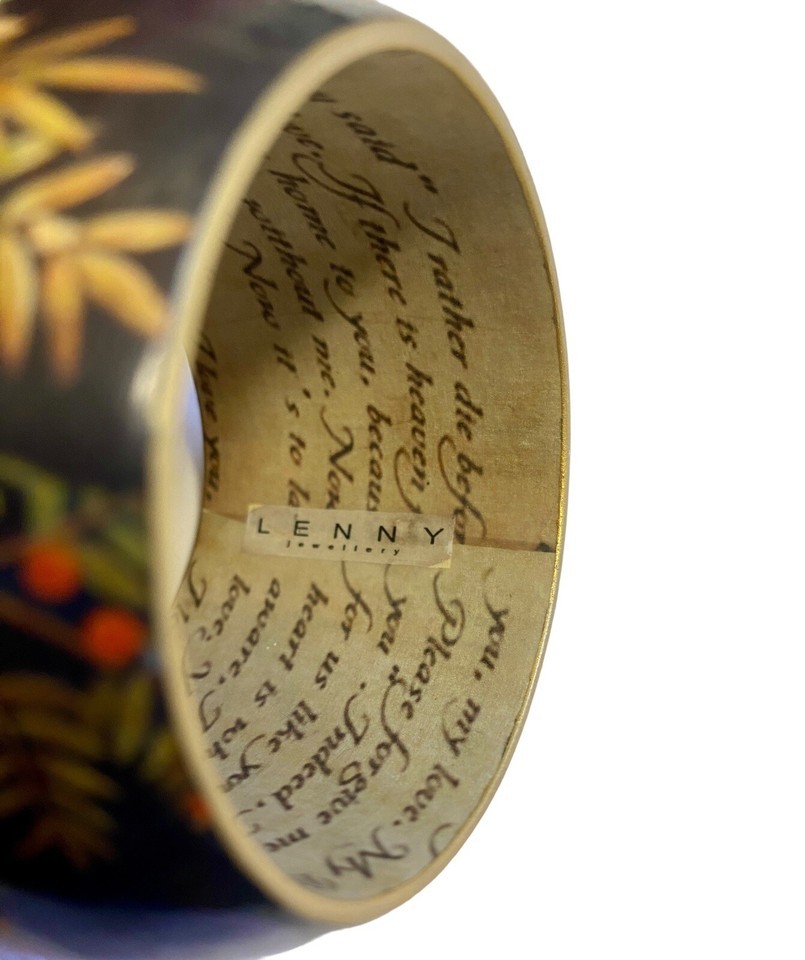 said" I rather die befor
If there is heaven
home to you, becaus
without me. Now
Now it 's to la
I love you,
LENNY
jewellery
you, my love. My
Please forgive me
you ". Indeed,
for us like yo
heart is wh
aware.
love,